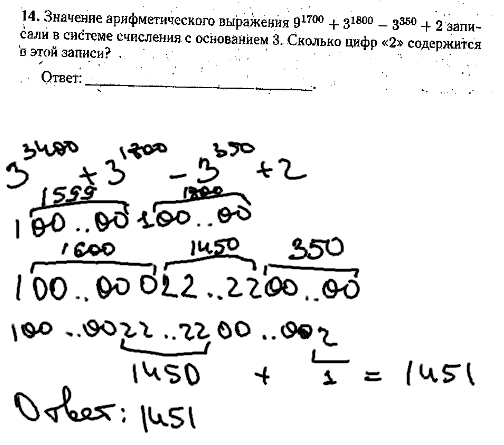 14. Значение арифметического выражения 9^1700 + 3^1800 − 3^350 + 2 запи-
сали в системе счисления с основанием 3. Сколько цифр «2» содержится
в этой записи?
Ответ:
3^3400 + 3^1800 - 3^350 + 2
1599 1800
100..00100..00
1600 1450 350
100..00022..2200..00
100..0022..2200..002
1450 + 1 = 1451
Ответ: 1451